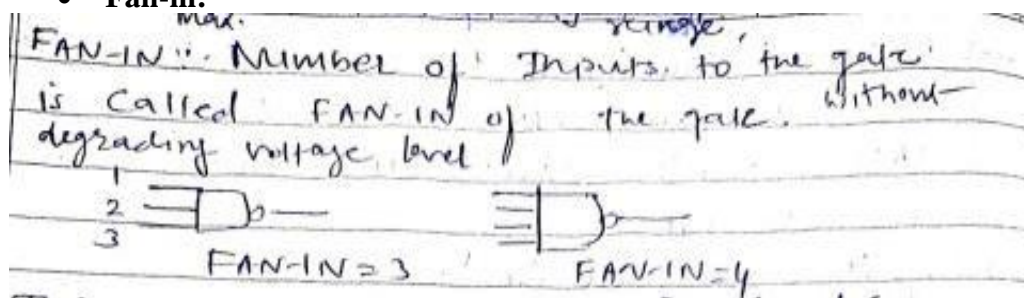 • Fan-in:
max.
FAN-IN :- Number of Inputs to the gate
is Called FAN-IN of the gate. without
degrading voltage level
1
2
3
FAN-IN = 3 FAN-IN = 4